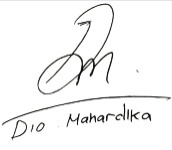 Dio Mahardika